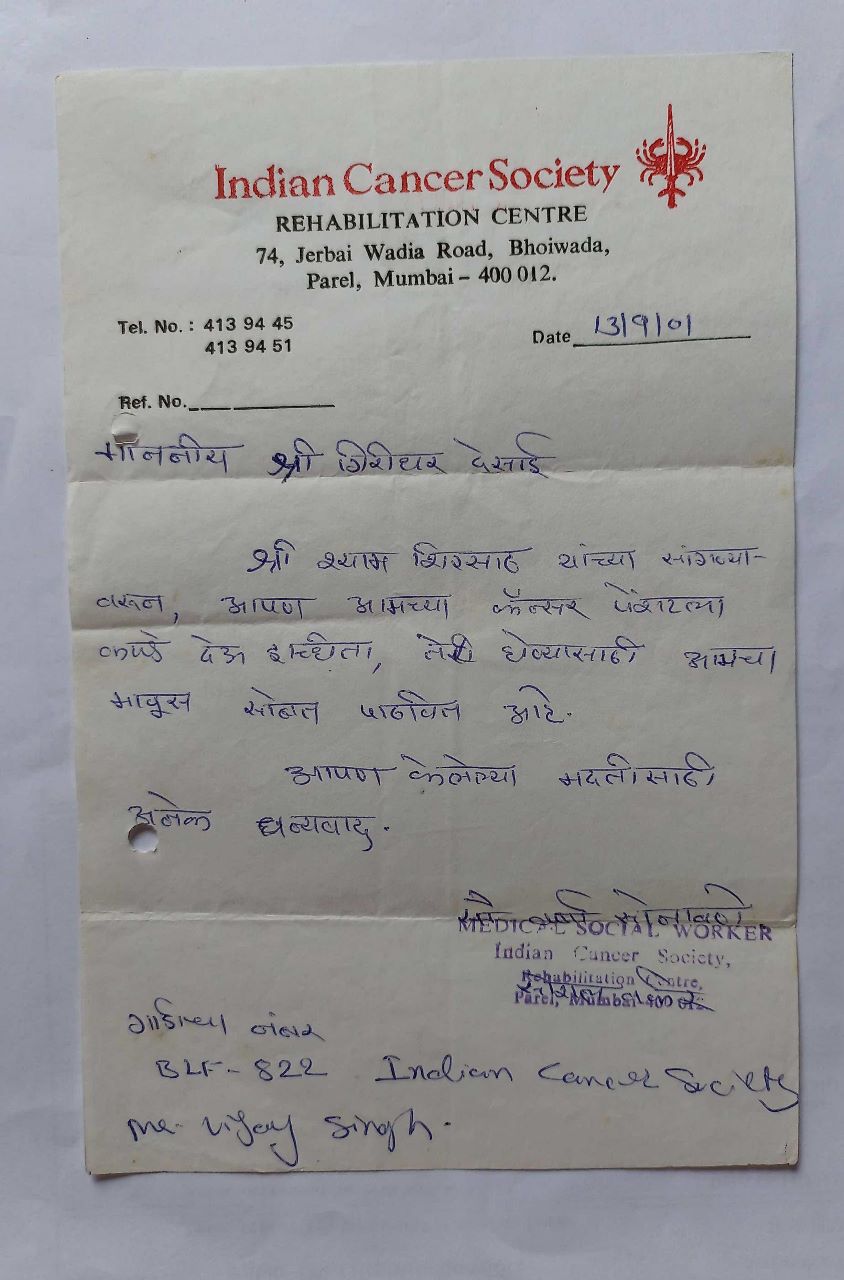 Indian Cancer Society
REHABILITATION CENTRE
74, Jerbai Wadia Road, Bhoiwada,
Parel, Mumbai – 400 012.
Tel. No. : 413 94 45
413 94 51
Date 13/9/01
Ref. No.
माननीय श्री गिरीधर देसाई
श्री श्याम शिरसाठ यांच्या सांगण्या-
वरून, आपण आमच्या कॅन्सर पेशंटला
कपडे देऊ इच्छिता, घेण्यासाठी आमचा
माणूस सोबत पाठवित आहे.
आपण केलेल्या मदतीसाठी
अनेक धन्यवाद.
सोनावणे
MEDICAL SOCIAL WORKER
Indian Cancer Society,
Rehabilitation Centre,
Parel, Mumbai 400 012.
गाडीचा नंबर
BLF - 822 Indian Cancer Society
Mr. Vijay Singh.